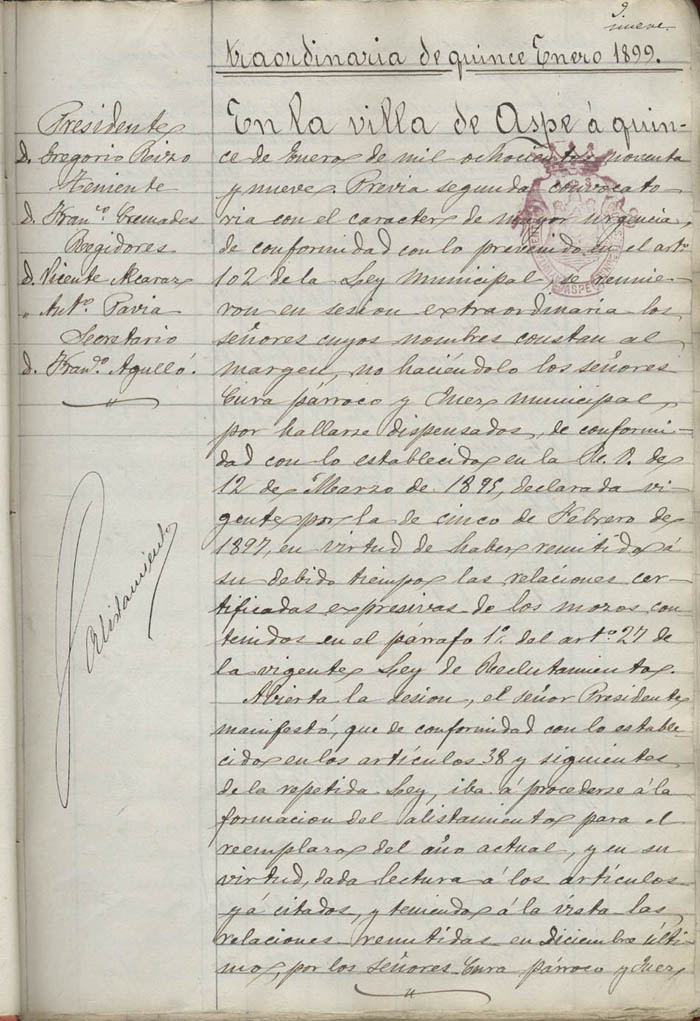 9.
nueve
traordinaria de quince Enero 1899.
Presidente
D. Gregorio Rizo
Teniente
D. Fran.co Cremades
Regidores
D. Vicente Alcaraz
" Ant.o Pavia
Secretario
D. Fran.co Agulló.
Alistamiento
En la villa de Aspe á quin-
ce de Enero de mil ochocientos noventa
y nueve Previa segunda convocato-
ria con el caracter de mayor urgencia,
de conformidad con lo prevenido en el art.o
102 de la Ley Municipal, se reunie-
ron en sesion extraordinaria los
señores cuyos nombres constan al
margen, no haciéndolo los señores
Cura párroco y Juez municipal,
por hallarse dispensados, de conformi-
dad con lo establecido en la R. O. de
12 de Marzo de 1895, declarada vi-
gente por la de cinco de Febrero de
1897, en virtud de haber remitido á
su debido tiempo las relaciones cer-
tificadas expresivas de los mozos con-
tenidos en el párrafo 1.o del art.o 27 de
la vigente Ley de Reclutamiento.
Abierta la sesion, el señor Presidente
manifestó, que de conformidad con lo estable-
cido en los artículos 38 y siguientes
de la repetida Ley, iba á procederse á la
formacion del alistamiento para el
reemplazo del año actual, y en su
virtud, dada lectura á los artículos
yá citados, y teniendo á la vista las
relaciones remitidas en Diciembre últi-
mo, por los señores Cura párroco y Juez